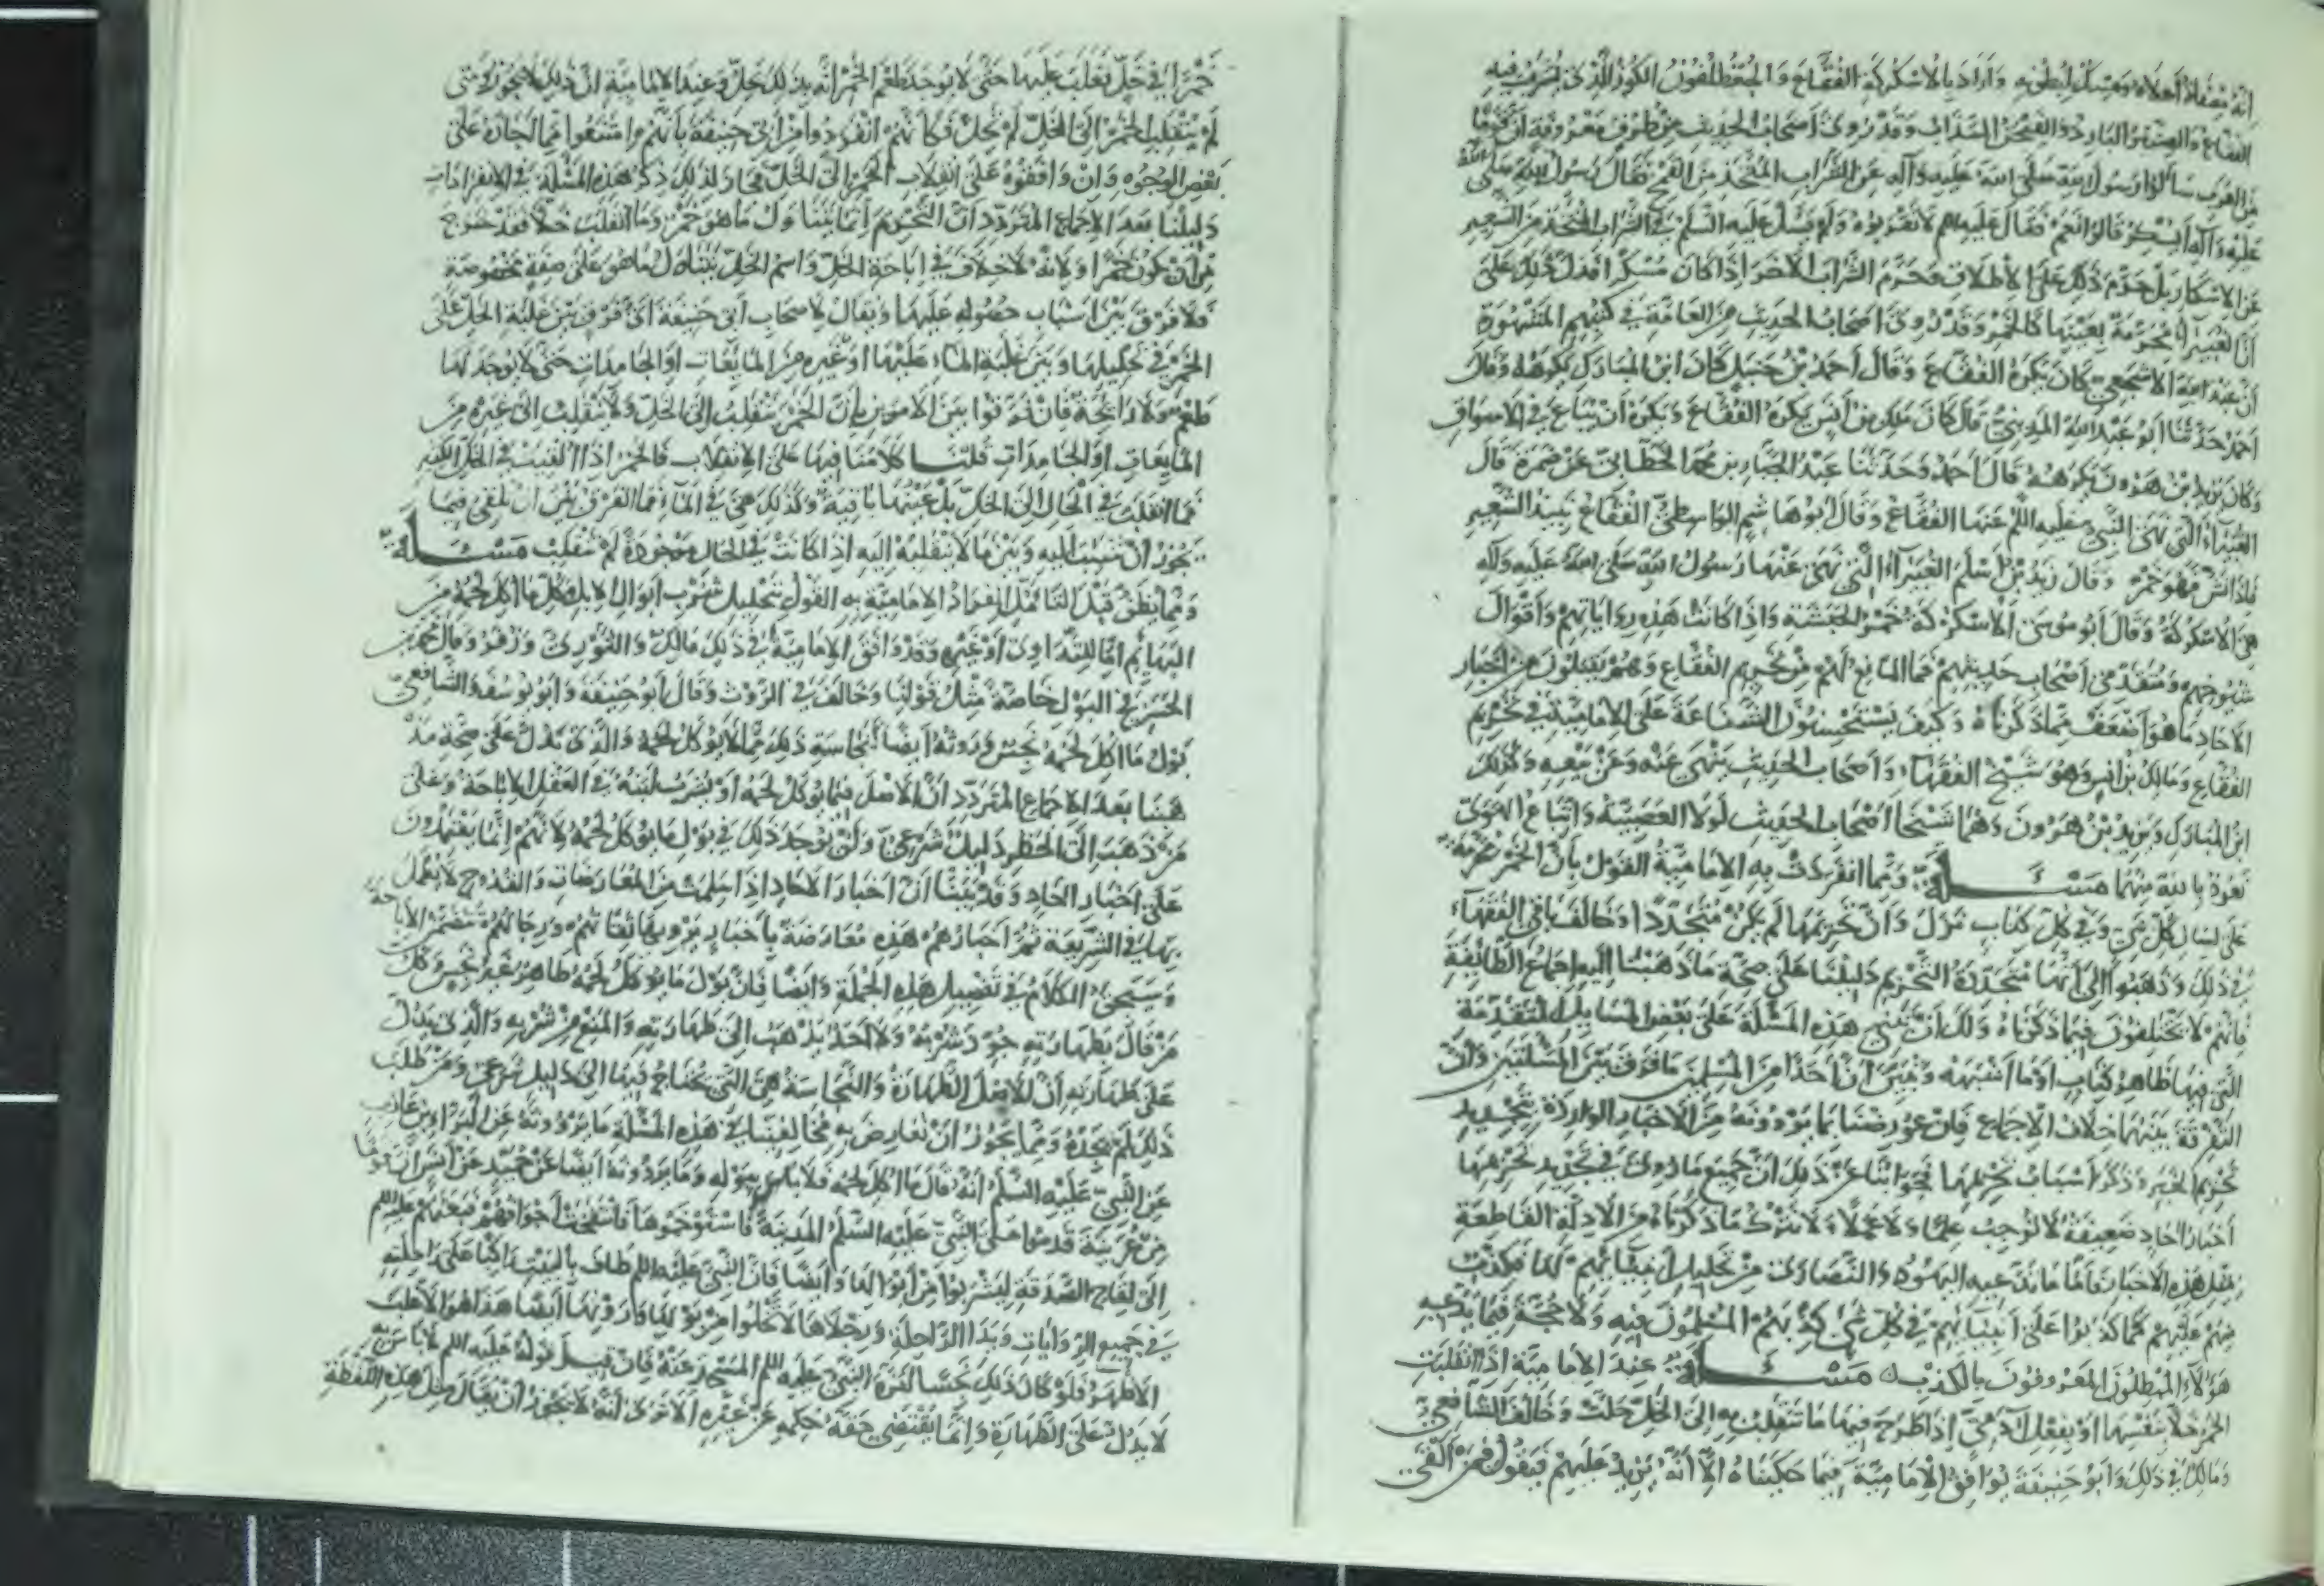 انه مصفاة أحلاه وعسل لبطونه وأراد بالاسكركة الفقاع والكوز الذي يشرب فيه
الفقاع والبارد وقد روى أصحاب الحديث من طرق معروفة ان قوما
من العرب سألوا رسول الله صلى الله عليه وآله عن الشراب المتخذ من القمح فقال رسول الله صلى الله
عليه وآله أيسكر قالوا نعم فقال عليه السلم لا تقربوه ولم يسأل عليه السلم في الشراب المتخذ من الشعير
عن الاسكار بل حرم ذلك على الاطلاق وحرم الشراب الاخر اذا كان مسكرا فدل ذلك على
أن الغبيراء محرمة بعينها كالخمر وقد روى أصحاب الحديث من العامة في كتبهم المشهورة
أن عبد الله الاشجعي كان يكره الفقاع وقال أحمد بن حنبل كان ابن المبارك يكرهه وقال
أحمد حدثنا أبو عبد الله المديني قال كان ملك بن أنس يكره الفقاع ويكره أن يباع في الاسواق
وكان يزيد بن هرون يكرهه قال أحمد وحدثنا عبد الجبار بن محمد الخطابي عن ضمرة قال
الغبيراء التي نهى النبي عليه السلم عنها الفقاع وقال أبو هاشم الواسطي الفقاع نبيذ الشعير
فاذا نش فهو خمر وقال زيد بن أسلم الغبيراء التي نهى عنها رسول الله صلى الله عليه وآله
هي الاسكركة وقال أبو موسى الاسكركة خمر الحبشة واذا كانت هذه رواياتهم وأقوال
شيوخهم ومتقدمي أصحاب حديثهم فما المانع لهم من تحريم الفقاع وهم يقبلون من أخبار
الاحاد ما هو أضعف مما ذكرناه وكيف يستحسنون الشناعة على الامامية في تحريم
الفقاع ومالك بن انس وهو شيخ الفقهاء وأصحاب الحديث ينهى عنه وعن بيعه وكذلك
ابن المبارك ويزيد بن هرون وهما شيخا أصحاب الحديث لولا العصبية واتباع الهوى
نعوذ بالله منهما مسئلة ومما انفردت به الامامية القول بأن الخمر محرمة
على لسان كل نبي وفي كل كتاب نزل وأن تحريمها لم يكن متجددا وخالف باقي الفقهاء
في ذلك وذهبوا الى أنها متجددة التحريم دليلنا على صحة ما ذهبنا اليه اجماع الطائفة
فانهم لا يختلفون فيما ذكرناه ولك أن تبني هذه المسئلة على بعض المسايل المتقدمة
التي فيها ظاهر كتاب أو ما أشبهه وتبين أن أحدا من المسلمين ما فرق بين المسئلتين وأن
التفرقة بينهما خلاف الاجماع فان عورضنا بما يروونه من الاخبار الواردة بتجديد
تحريم الخمر وذكر أسباب تحريمها فجوابنا عن ذلك أن جميع ما روى في تجديد تحريمها
أخبار احاد ضعيفة لا توجب علما ولا عملا ولا نترك ما ذكرناه من الادلة القاطعة
بمثل هذه الاخبار فاما ما يدعيه اليهود والنصارى من تحليل أنبيائهم لها فكذب
منهم عليهم كما كذبوا على أنبيائهم في كل شيء كذبهم المسلمون فيه ولا حجة فيما يدعيه
هؤلاء المبطلون المعروفون بالكذب مسئلة عند الامامية اذا انقلبت
الخمر خلا بنفسها أو بفعل آدمي اذا طرح فيها ما تنقلب به الى الخل حلت وخالف الشافعي
ومالك في ذلك وأبو حنيفة يوافق الامامية فيما حكيناه الا أنه يزيد عليهم فيقول فيمن ألقى
خمرا في خل فغلب عليها حتى لا يوجد طعم الخمر انه بذلك يحل وعند الامامية ان ذلك لا يجوز ومتى
لم ينقلب الخمر الى الخل لم يحل فكأنهم انفردوا من أبي حنيفة بأنهم امتنعوا مما أجازه على
بعض الوجوه وان وافقوه على انقلاب الخمر الى الخل فجاز لذلك ذكر هذه المسئلة في الانفرادات
دليلنا بعد الاجماع المتردد ان التحريم انما يتناول ما هو خمر وما انقلب خلا فقد خرج
من أن يكون خمرا ولانه لا خلاف في اباحة الخل واسم الخل يتناول ما هو على صفة مخصوصة
فلا فرق بين أسباب حصوله عليها ويقال لاصحاب أبي حنيفة أي فرق بين غلبة الخل على
الخمر في تحليلها وبين غلبة الماء عليها أو غيره من المائعات أو الجامدات حتى لا يوجد لها
طعم ولا رائحة فان فرقوا بين الامرين بأن الخمر ينقلب الى الخل ولا ينقلب الى غيره من
المايعات أو الجامدات قلنا كلامنا فيها على الانقلاب فالخمر اذا ألقيت في الخل الكثير
فما انقلبت في الحال الى الخل بل عينها باقية وكذلك هي في الماء فما الفرق بين ان تلقى فيما
يجوز أن تنقلب اليه وبين ما لا ينقلب اليه اذا كانت في الحال موجودة لم تنقلب مسئلة
ومما يظن قبل التأمل انفراد الامامية به القول بتحليل شرب أبوال الابل وكل ما أكل لحمه من
البهائم اما للتداوي أو غيره وقد وافق الامامية في ذلك مالك والثوري وزفر وقال محمد بن
الحسن في البول خاصة مثل قولنا وخالف في الروث وقال أبو حنيفة وأبو يوسف والشافعي
بول ما أكل لحمه نجس وروثه أيضا كنجاسة ذلك مما لا يوكل لحمه والذي يدل على صحة مذ
هبنا بعد الاجماع المتردد ان الاصل فيما يوكل لحمه أو يشرب لبنه في العقل الاباحة وعلى
من ذهب الى الحظر دليل شرعي ولن يوجد ذلك في بول ما يوكل لحمه لانهم انما يعتمدون
على أخبار احاد وقد بينا ان أخبار الاحاد اذا سلمت من المعارضات والقدوح لا يعمل
بها في الشريعة ثم أخبارهم هذه معارضة بأخبار يرويها ثقاتهم ورجالهم تتضمن الاباحة
وسيجيء الكلام في تفصيل هذه الجملة وأيضا فان بول ما يوكل لحمه طاهر غير نجس وكل
من قال بطهارته جوز شربه ولا أحد يذهب الى طهارته والمنع من شربه والذي يدل
على طهارته أن الاصل الطهارة والنجاسة هي التي يحتاج فيها الى دليل شرعي ومن طلب
ذلك لم يجده ومما يجوز أن نعارض به مخالفينا في هذه المسئلة ما يروونه عن البراء بن عازب
عن النبي عليه السلم أنه قال ما أكل لحمه فلا بأس ببوله وما يروونه أيضا عن حميد عن أنس ان قوما
من عرينة قدموا على النبي عليه السلم المدينة فاستوخموها فانتفخت أجوافهم فبعثهم عليه السلم
الى لقاح الصدقة ليشربوا من أبوالها وأيضا فان النبي عليه السلم طاف بالبيت راكبا على راحلته
في جميع الروايات ويدا الراحلة ورجلاها لا تخلوا من بولها وروثها أيضا هذا هو الاغلب
الاظهر فلو كان ذلك نجسا لنزه النبي عليه السلم المسجد عنه فان قيل قوله عليه السلم لا بأس به
لا يدل على الطهارة وانما يقتضي خفة حكمه عن غيره ألا ترى أنه لا يجوز أن يقال مثل هذه اللفظة